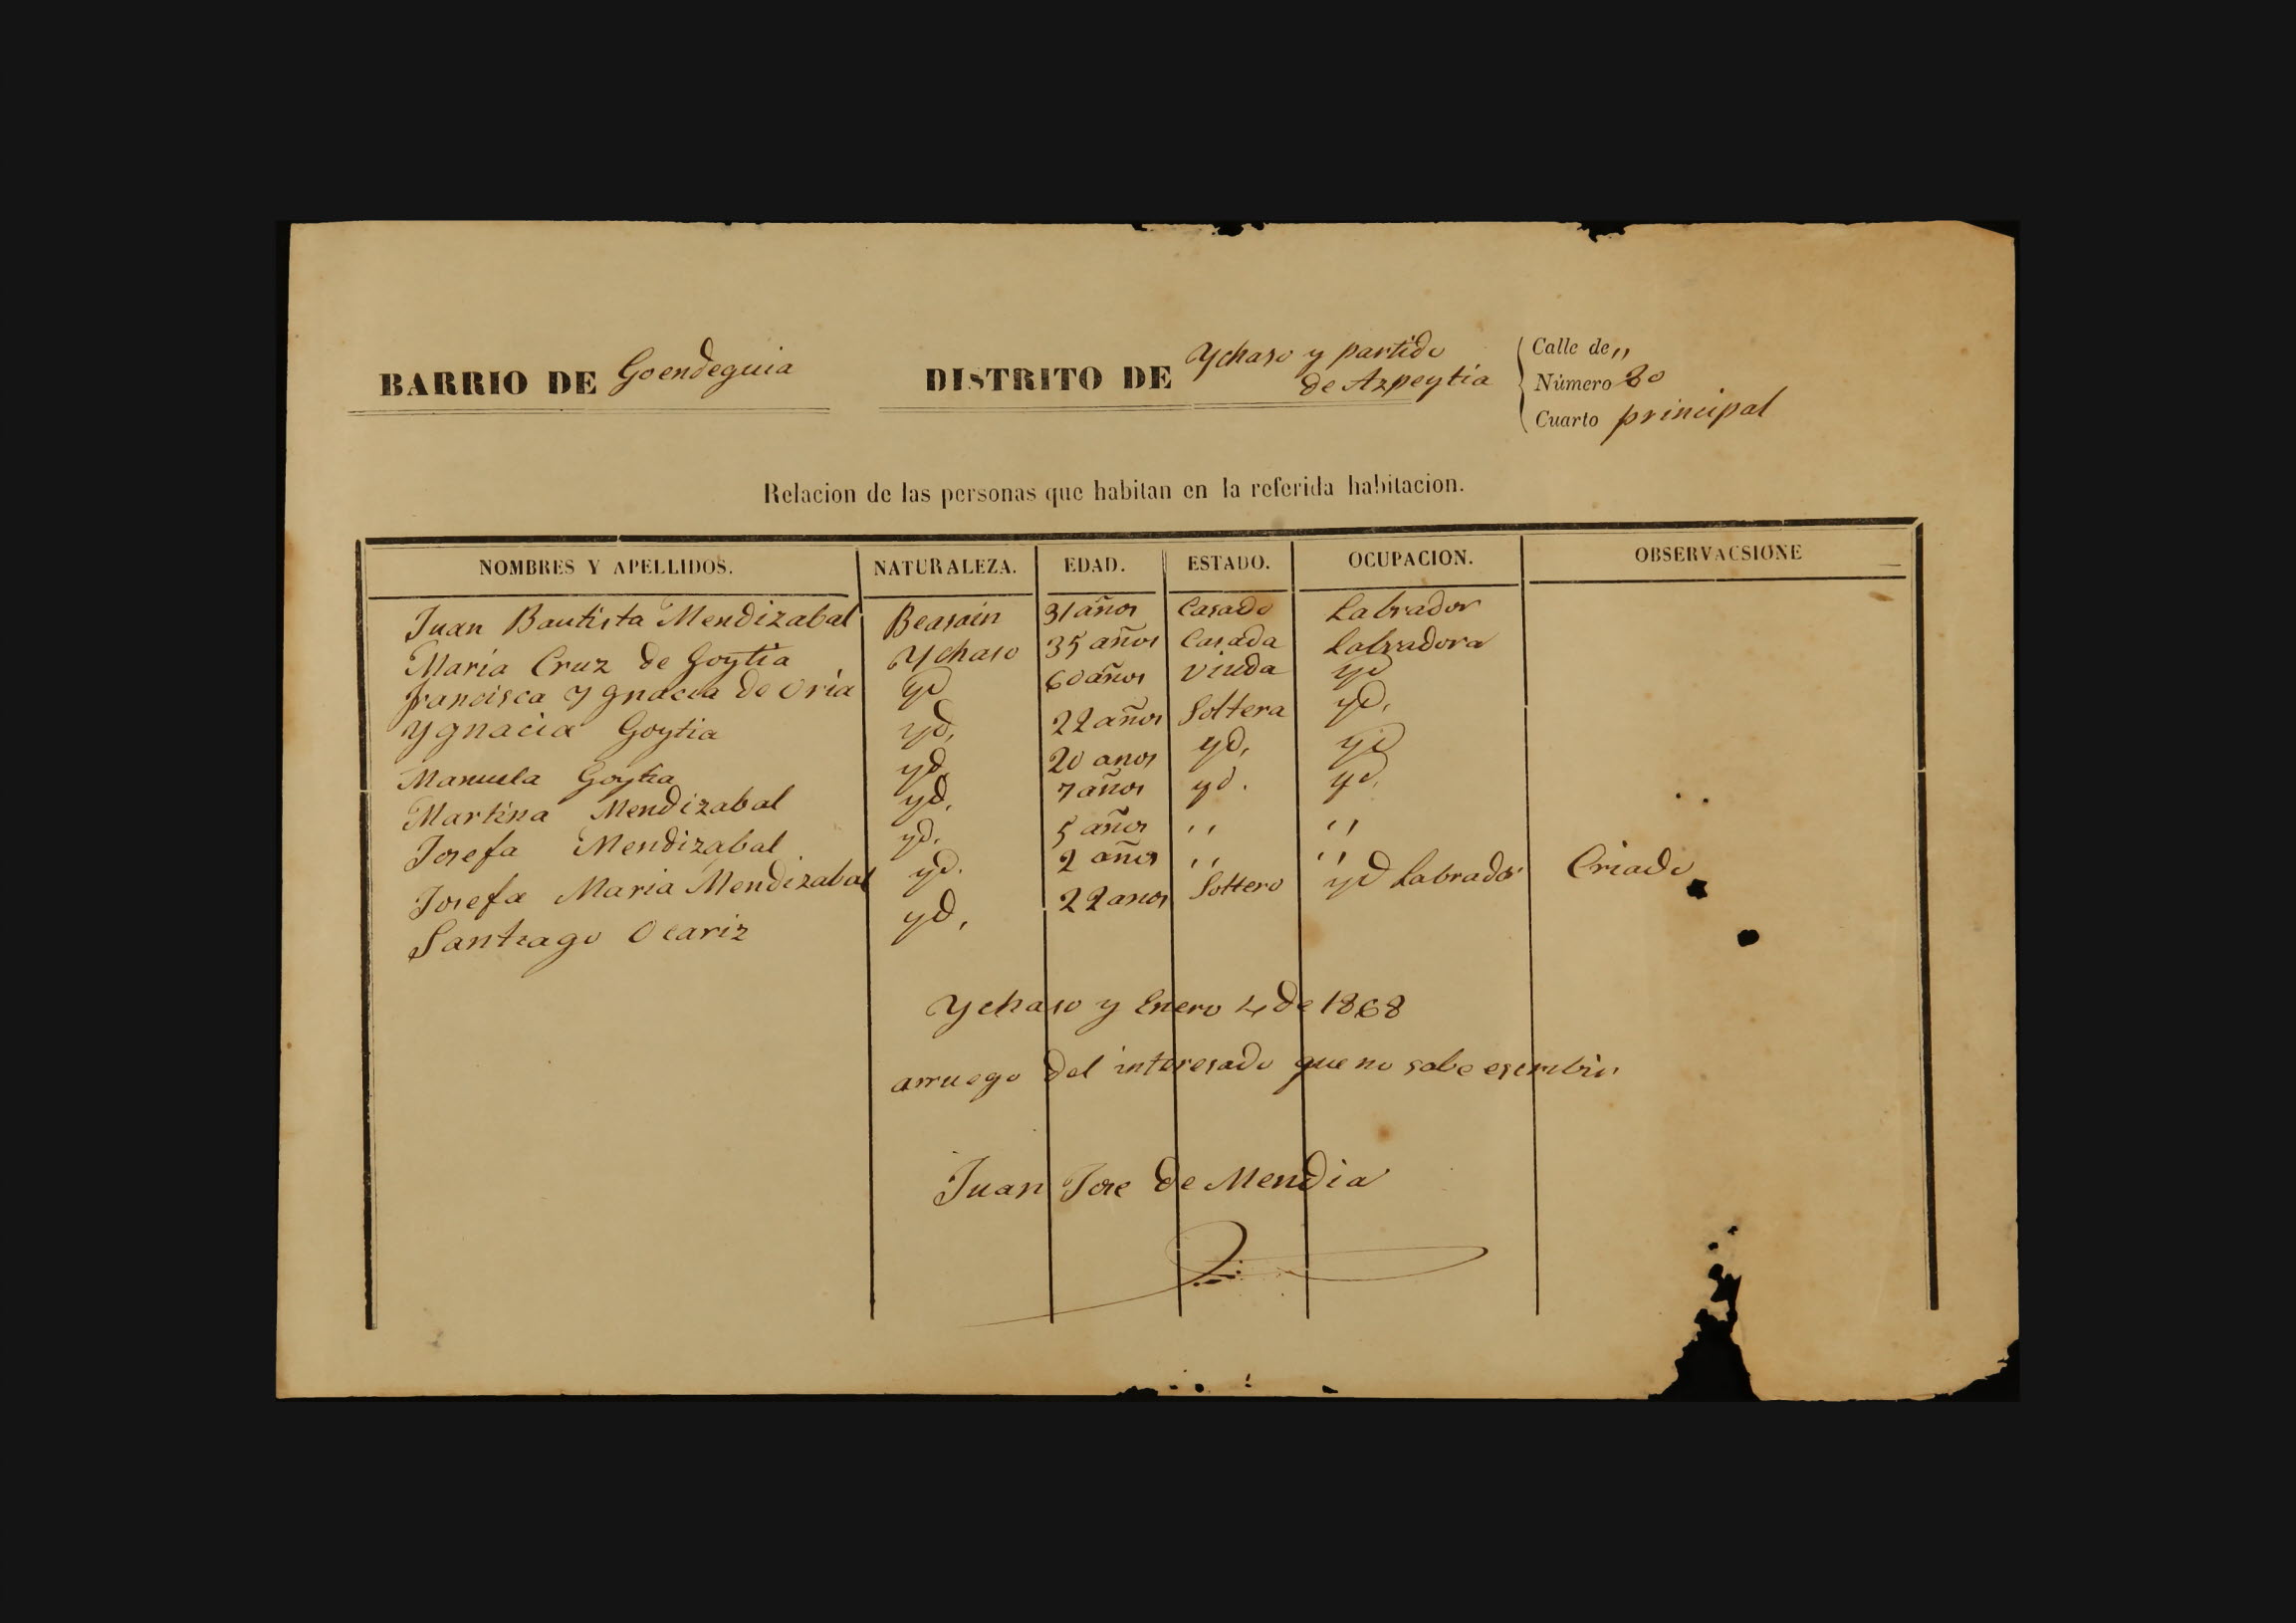 BARRIO DE Goendeguia DISTRITO DE Ychaso y partido de Azpeytia
Calle de "
Número 20
Cuarto principal
Relacion de las personas que habitan en la referida habitacion.
NOMBRES Y APELLIDOS. NATURALEZA. EDAD. ESTADO. OCUPACION. OBSERVACSIONE
Juan Bautista Mendizabal Beasain 31 años Casado Labrador
Maria Cruz de Goytia Ychaso 35 años Casada Labradora
francisca Ygnacia de Oria yd 60 años viuda yd
Ygnacia Goytia yd, 22 años Soltera yd,
Manuela Goytia yd, 20 anos yd, yd
Martina Mendizabal yd, 7 años yd. yd.
Josefa Mendizabal yd. 5 años " "
Josefa Maria Mendizabal yd. 2 años " "
Santiago Ocariz yd, 22 anos Soltero yd Labrador Criado
Ychaso y Enero 4 de 1868
arruego del interesado que no sabe escribir
Juan Jose de Mendia